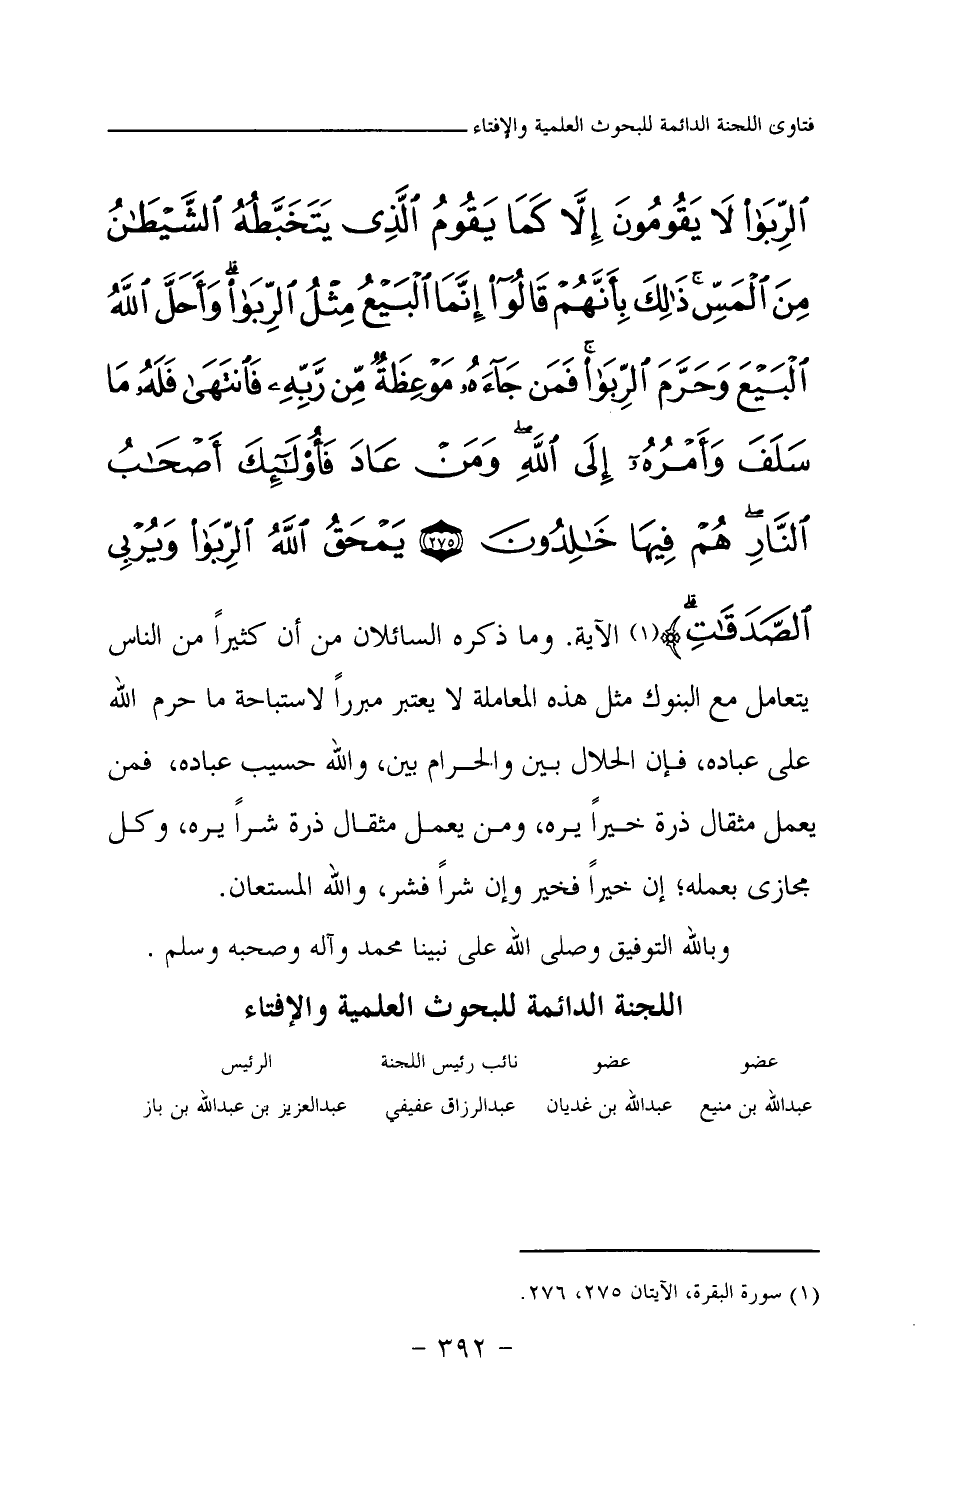 فتاوى اللجنة الدائمة للبحوث العلمية والإفتاء
ٱلرِّبَوٰا۟ لَا يَقُومُونَ إِلَّا كَمَا يَقُومُ ٱلَّذِى يَتَخَبَّطُهُ ٱلشَّيْطَـٰنُ
مِنَ ٱلْمَسِّ ۚ ذَٰلِكَ بِأَنَّهُمْ قَالُوٓا۟ إِنَّمَا ٱلْبَيْعُ مِثْلُ ٱلرِّبَوٰا۟ ۗ وَأَحَلَّ ٱللَّهُ
ٱلْبَيْعَ وَحَرَّمَ ٱلرِّبَوٰا۟ ۚ فَمَن جَآءَهُۥ مَوْعِظَةٌ مِّن رَّبِّهِۦ فَٱنتَهَىٰ فَلَهُۥ مَا
سَلَفَ وَأَمْرُهُۥٓ إِلَى ٱللَّهِ ۖ وَمَنْ عَادَ فَأُو۟لَـٰٓئِكَ أَصْحَـٰبُ
ٱلنَّارِ ۖ هُمْ فِيهَا خَـٰلِدُونَ ﴿٢٧٥﴾ يَمْحَقُ ٱللَّهُ ٱلرِّبَوٰا۟ وَيُرْبِى
ٱلصَّدَقَـٰتِ ۗ ﴾(١) الآية. وما ذكره السائلان من أن كثيراً من الناس
يتعامل مع البنوك مثل هذه المعاملة لا يعتبر مبرراً لاستباحة ما حرم الله
على عباده، فإن الحلال بين والحرام بين، والله حسيب عباده، فمن
يعمل مثقال ذرة خيراً يره، ومن يعمل مثقال ذرة شراً يره، وكل
مجازى بعمله؛ إن خيراً فخير وإن شراً فشر، والله المستعان.
وبالله التوفيق وصلى الله على نبينا محمد وآله وصحبه وسلم .
اللجنة الدائمة للبحوث العلمية والإفتاء
عضو عضو نائب رئيس اللجنة الرئيس
عبدالله بن منيع عبدالله بن غديان عبدالرزاق عفيفي عبدالعزيز بن عبدالله بن باز
(١) سورة البقرة، الآيتان ٢٧٥، ٢٧٦.
- ٣٩٢ -